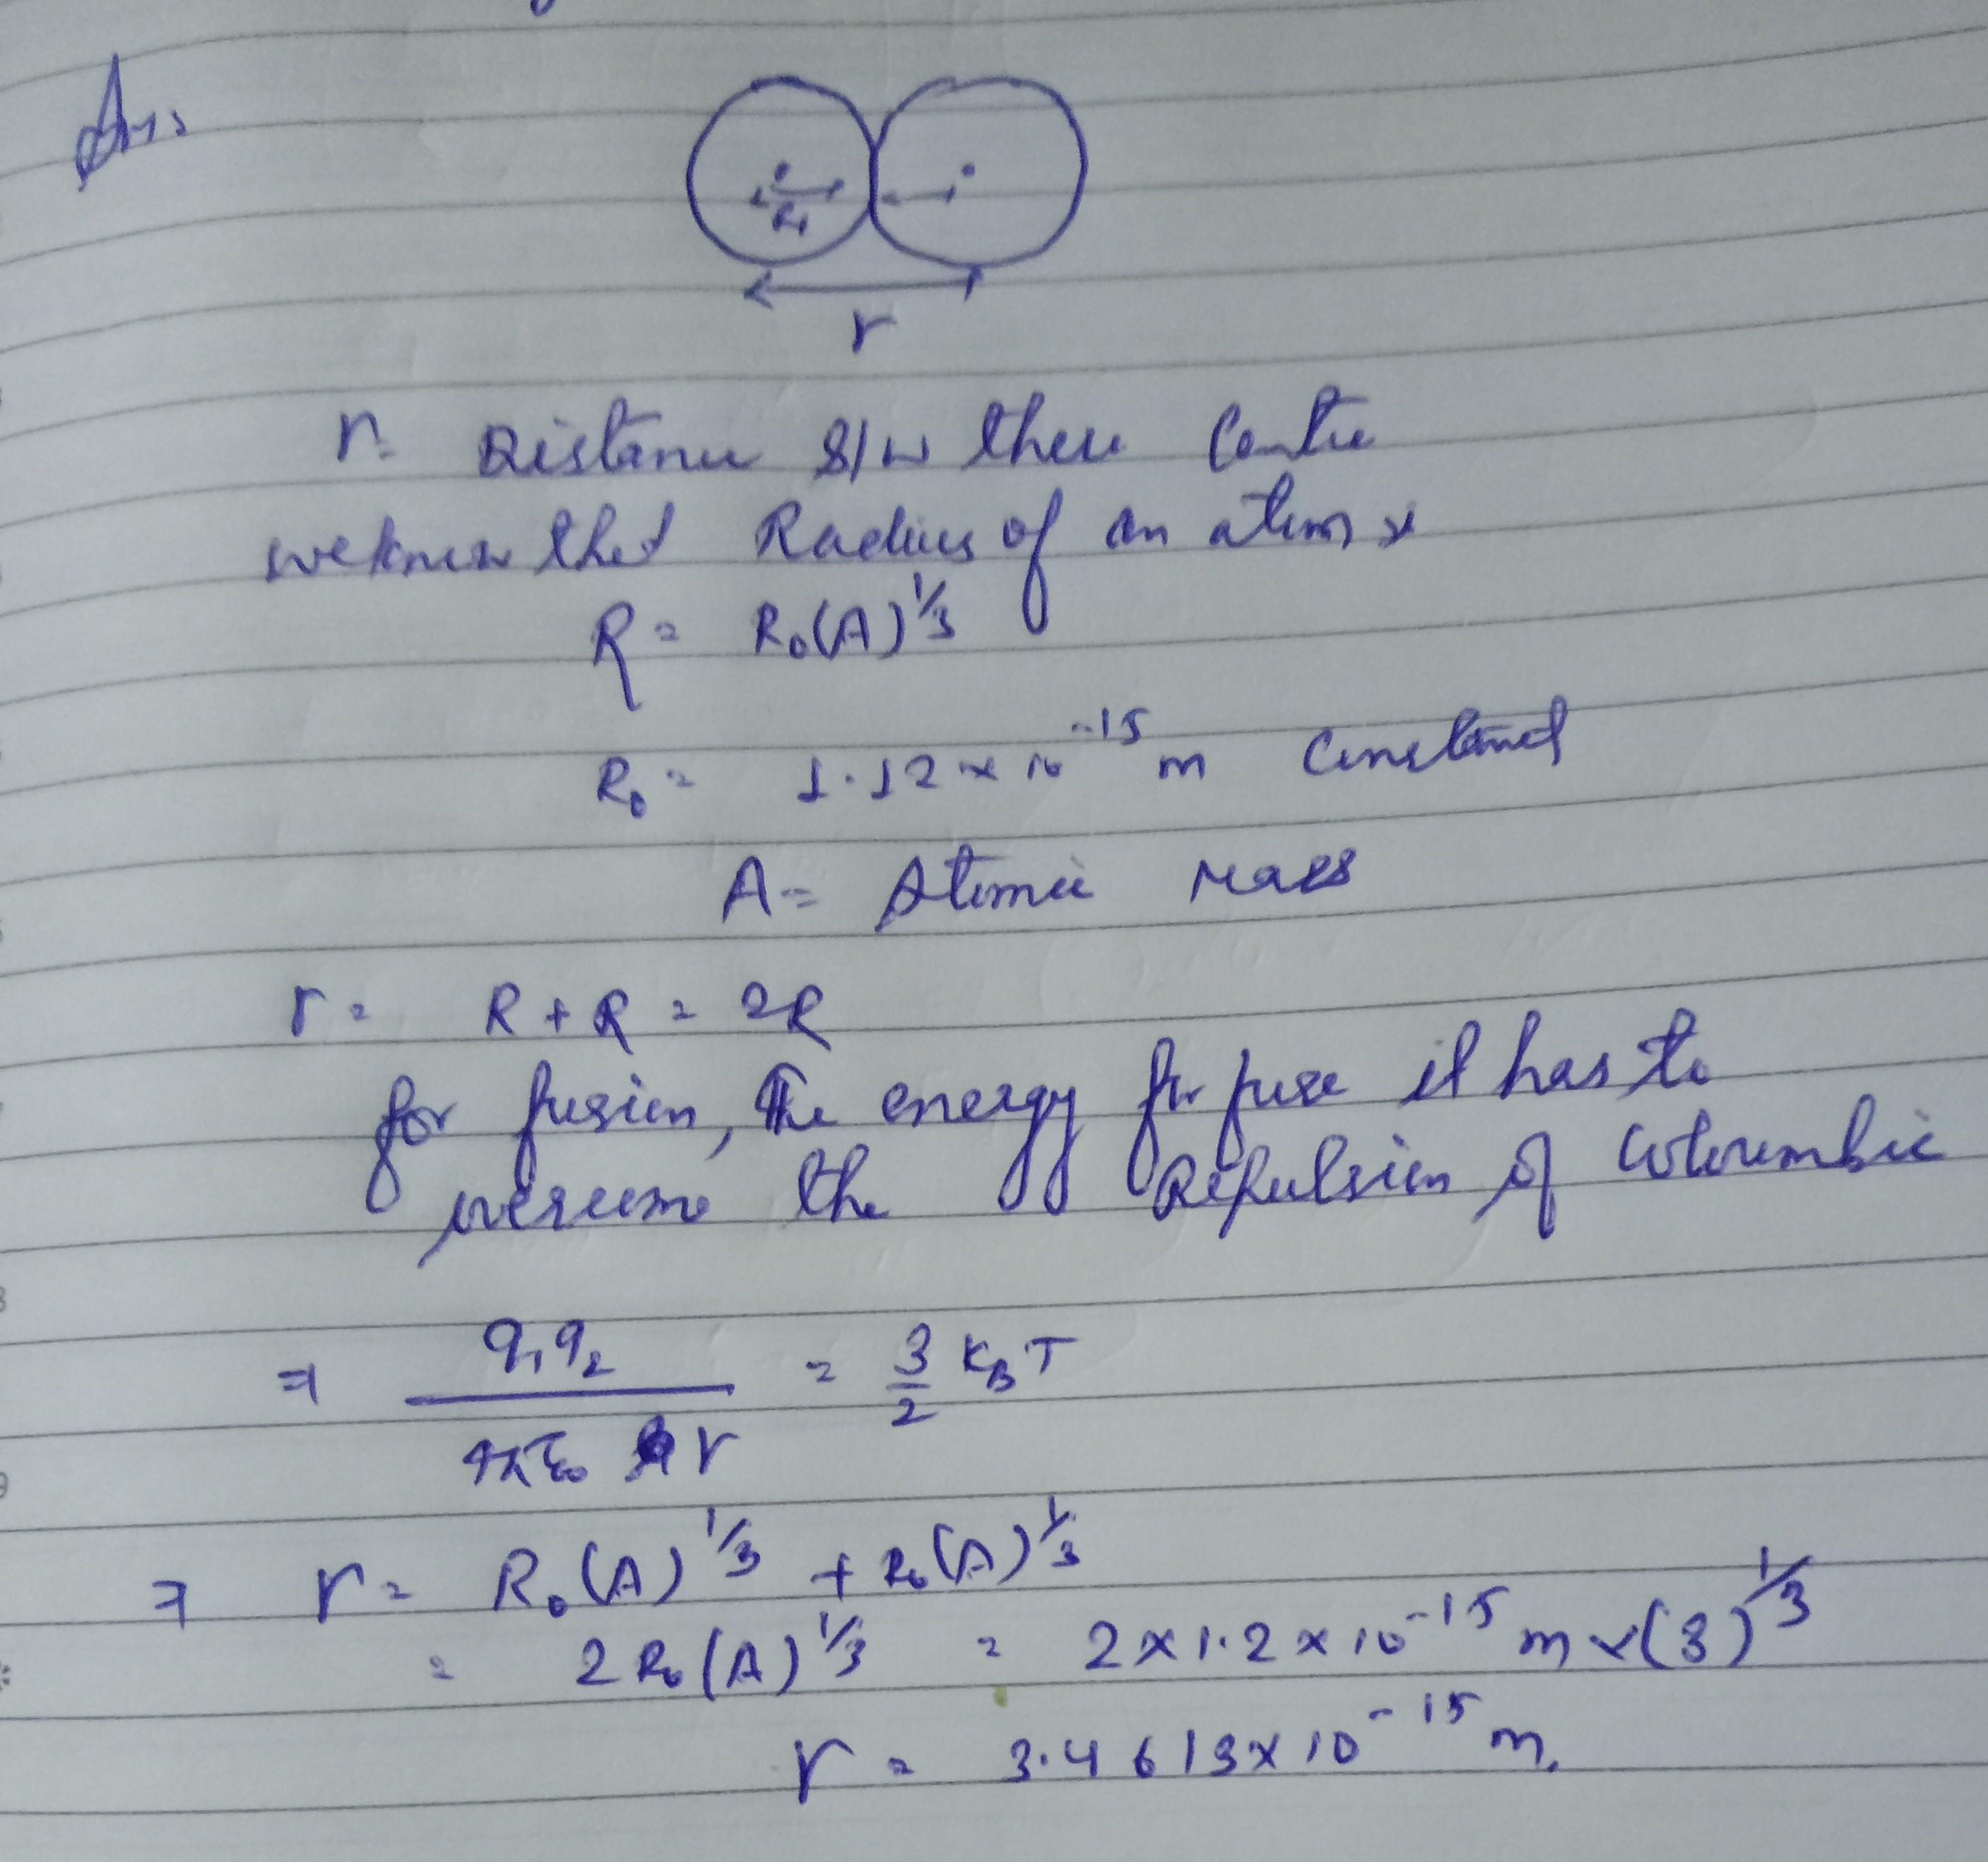 Ans
R₁
r
r = Distance B/w there Centre
we know that Radius of an atom is
R = R₀(A)^1/3
R₀ = 1.12 × 10^-15 m Constant
A = Atomic Mass
r = R + R = 2R
for fusion, the energy for fuse it has to
overcome the Repulsion of Coloumbic
⇒ q₁q₂ / 4πε₀ r = 3/2 K_B T
⇒ r = R₀(A)^1/3 + R₀(A)^1/3
= 2R₀(A)^1/3 = 2 × 1.2 × 10^-15 m × (3)^1/3
r = 3.4613 × 10^-15 m.